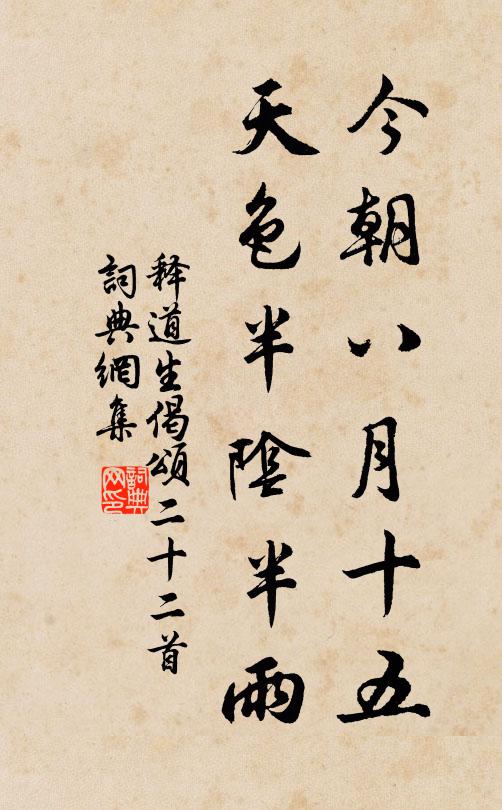 今朝八月十五
天色半陰半雨
释道生偈頌二十二首
詞典網集
詞典网印